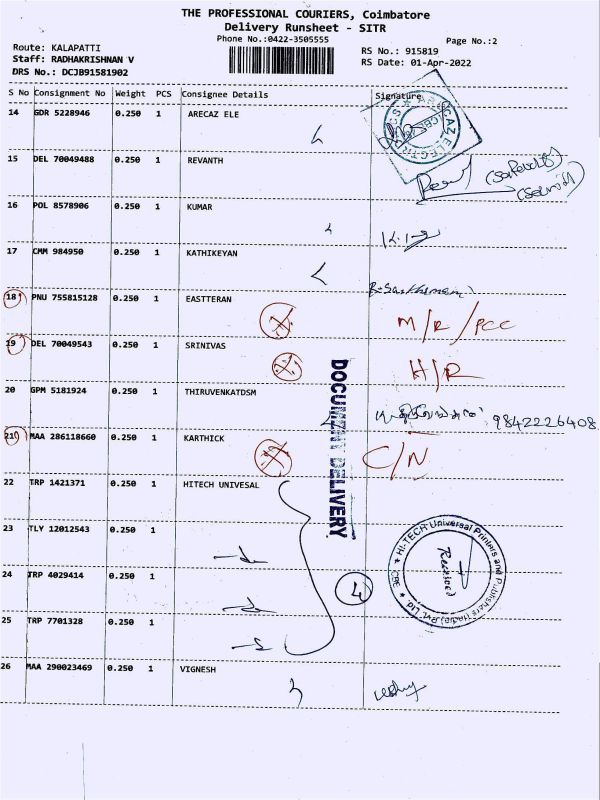 THE PROFESSIONAL COURIERS, Coimbatore
Delivery Runsheet - SITR
Phone No.:0422-3505555
Page No.:2
Route: KALAPATTI
RS No.: 915819
Staff: RADHAKRISHNAN V
RS Date: 01-Apr-2022
DRS No.: DCJB91581902
S No Consignment No Weight PCS Consignee Details Signature
14 GDR 5228946 0.250 1 ARECAZ ELE
15 DEL 70049488 0.250 1 REVANTH
16 POL 8578906 0.250 1 KUMAR
17 CMM 984950 0.250 1 KATHIKEYAN
18 PNU 755815128 0.250 1 EASTTERAN
M/R/PCC
19 DEL 70049543 0.250 1 SRINIVAS
H/R
20 GPM 5181924 0.250 1 THIRUVENKATDSM
9842226408
21 MAA 286118660 0.250 1 KARTHICK
C/N
DOCUMENT DELIVERY
22 TRP 1421371 0.250 1 HITECH UNIVESAL
23 TLY 12012543 0.250 1
24 TRP 4029414 0.250 1
4
HI-TECH Universal Printers and Publishers (India) Pvt. Ltd. ★ CBE ★
Received
25 TRP 7701328 0.250 1
26 MAA 290023469 0.250 1 VIGNESH